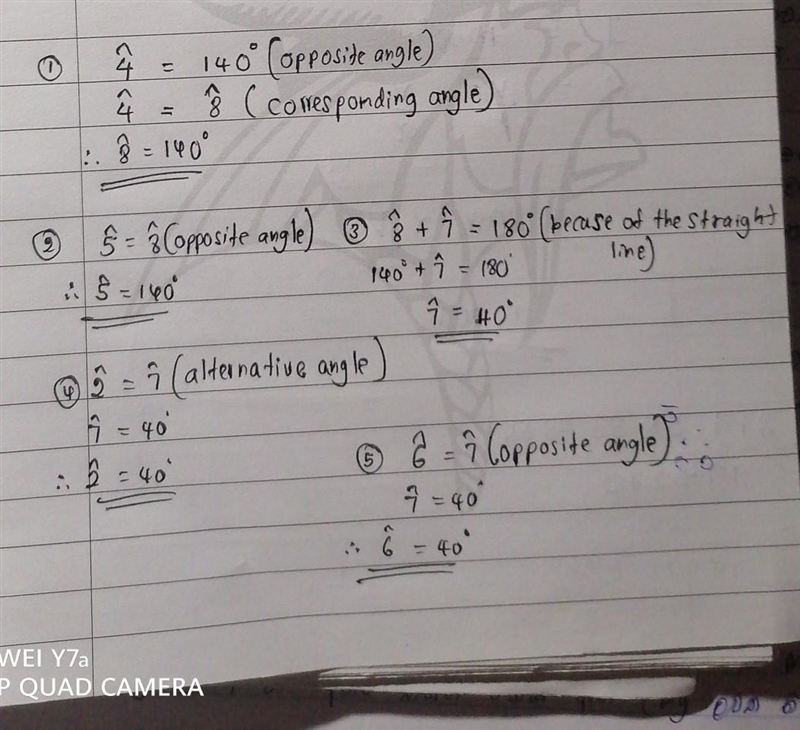 ① 4̂ = 140° (opposite angle)
4̂ = 8̂ (corresponding angle)
∴ 8̂ = 140°
② 5̂ = 8̂ (opposite angle)
∴ 5̂ = 140°
③ 8̂ + 7̂ = 180° (becase of the straight line)
140° + 7̂ = 180°
7̂ = 40°
④ 2̂ = 7̂ (alternative angle)
7̂ = 40°
∴ 2̂ = 40°
⑤ 6̂ = 7̂ (opposite angle)
7̂ = 40°
∴ 6̂ = 40°
WEI Y7a
P QUAD CAMERA